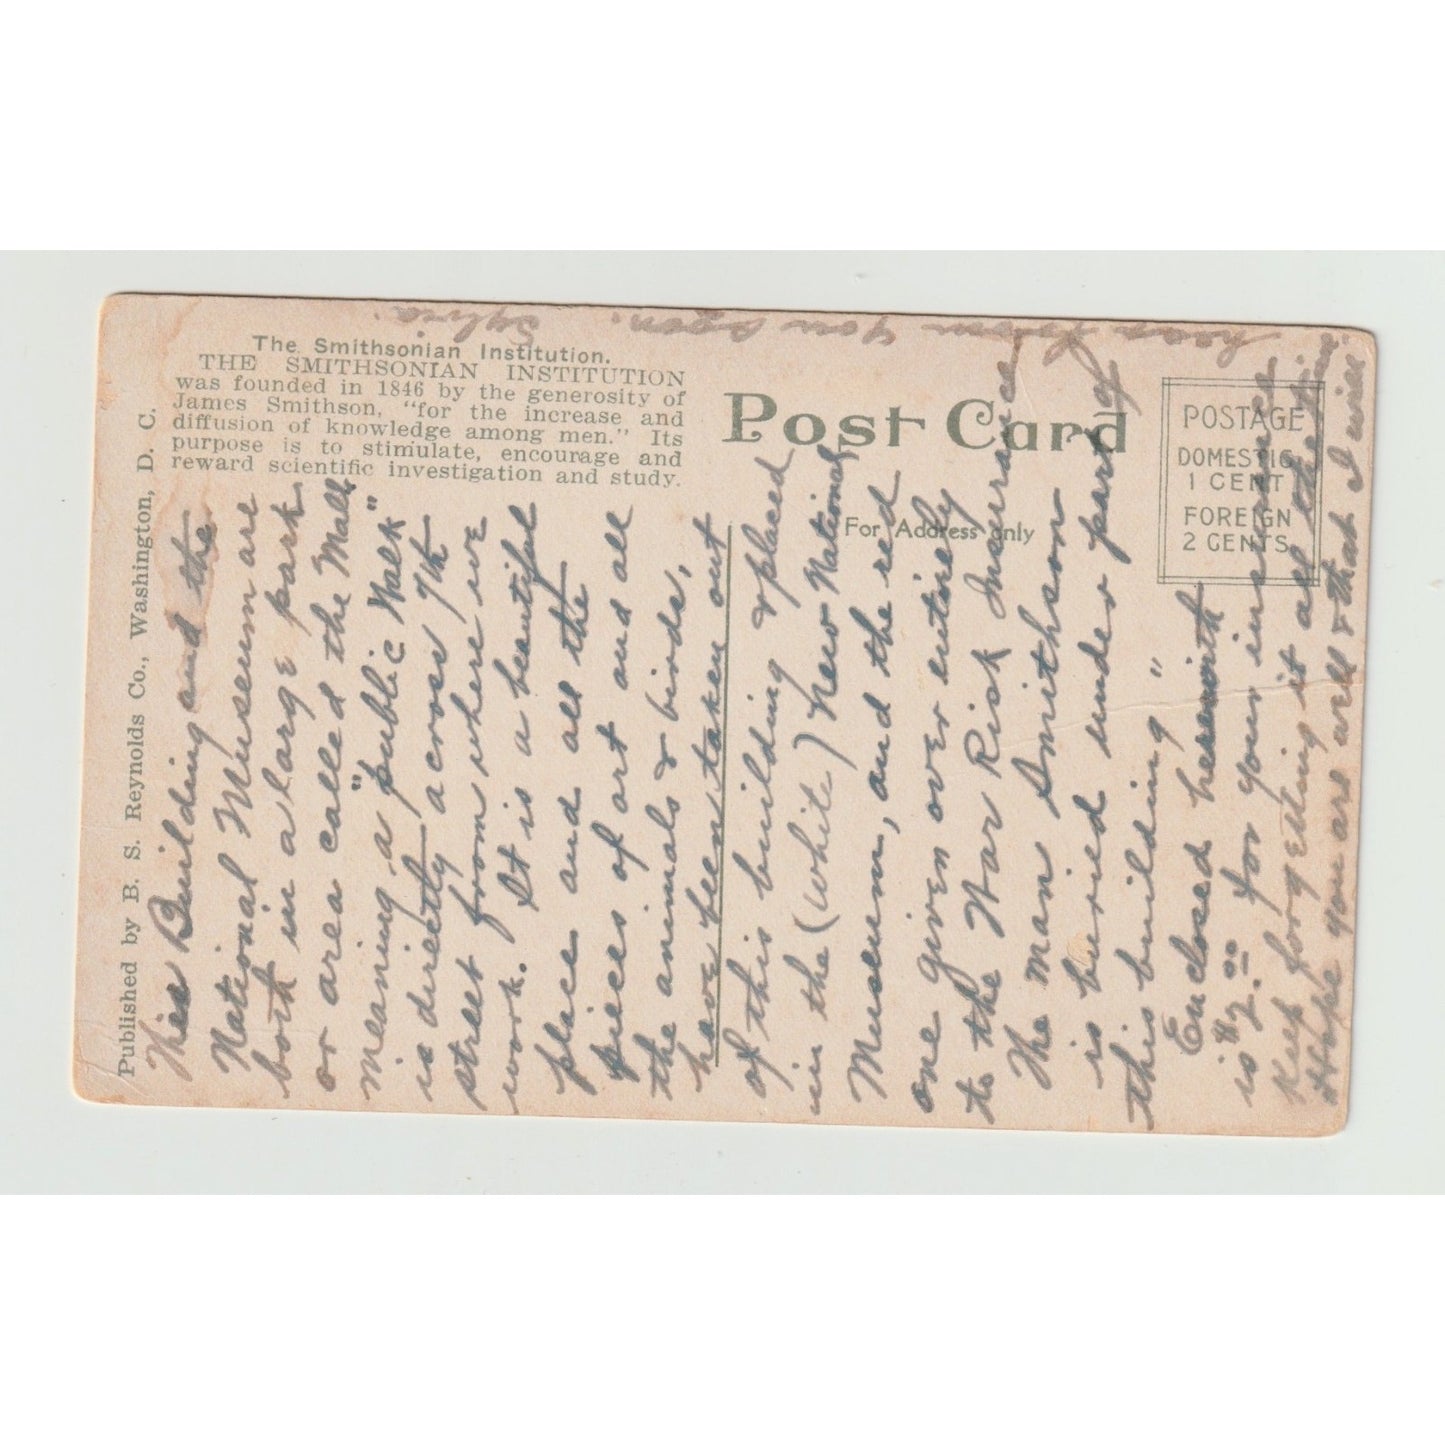 The Smithsonian Institution.
THE SMITHSONIAN INSTITUTION
was founded in 1846 by the generosity of
James Smithson, "for the increase and
diffusion of knowledge among men." Its
purpose is to stimulate, encourage and
reward scientific investigation and study.
Published by B. S. Reynolds Co., Washington, D. C.
Post Card
For Address only
POSTAGE
DOMESTIC
1 CENT
FOREIGN
2 CENTS
This Building and the
National Museum are
both in a large park
or area called the Mall,
meaning a "public walk"
is directly across 7th
street from where we
work. It is a beautiful
place and all the
pieces of art and all
the animals & birds,
have been taken out
of this building & placed
in the (white) new National
Museum, and the red
one given over entirely
to the War Risk Insurance
The man Smithson
is buried under part of
this building"
Enclosed herewith
is $2.00 for your insurance
Keep forgetting it all the time
Hope you are well & that I will
hear from you soon.
Sylvia.